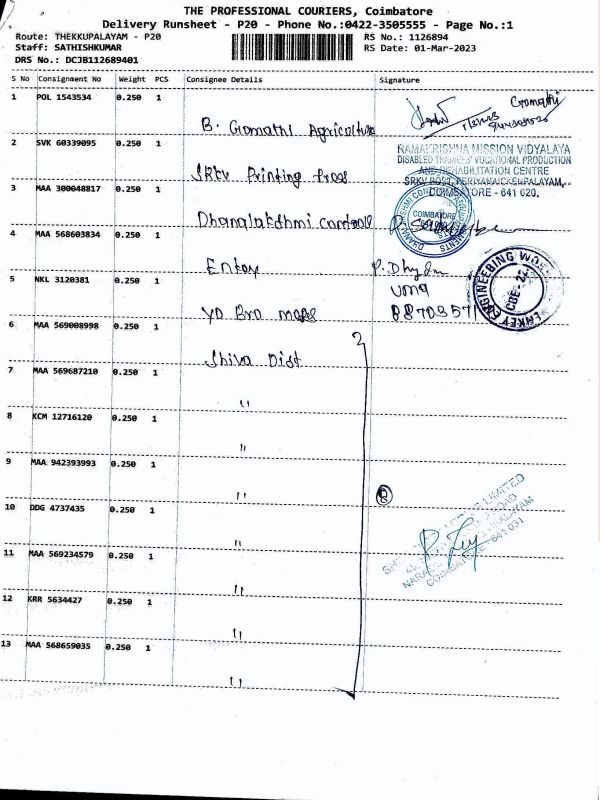 THE PROFESSIONAL COURIERS, Coimbatore
Delivery Runsheet - P20 - Phone No.:0422-3505555 - Page No.:1
Route: THEKKUPALAYAM - P20
Staff: SATHISHKUMAR
DRS No.: DCJB112689401
RS No.: 1126894
RS Date: 01-Mar-2023
S No Consignment No Weight PCS Consignee Details Signature
1 POL 1543534 0.250 1
B. Gomathi Agriculture
Gomathi
2 SVK 60339095 0.250 1
SRKV Printing Press
RAMAKRISHNA MISSION VIDYALAYA
DISABLED TRAINEES' VOCATIONAL PRODUCTION
AND REHABILITATION CENTRE
SRKV POST, PERIYANAICKENPALAYAM,
COIMBATORE - 641 020.
3 MAA 300048817 0.250 1
Dhanalakshmi
COIMBATORE
4 MAA 568603834 0.250 1
Enkey
P. Dhyan
ENKEY ENGINEERING WORKS
CBE-22
5 NKL 3120381 0.250 1
YD Bro
Uma
6 MAA 569008998 0.250 1
Shiva Dist
7 MAA 569687210 0.250 1
"
8 KCM 12716120 0.250 1
"
9 MAA 942393993 0.250 1
"
10 DDG 4737435 0.250 1
"
LIMITED
ROAD
COIMBATORE - 641 031
11 MAA 569234579 0.250 1
"
12 KRR 5634427 0.250 1
"
13 MAA 568659035 0.250 1
"